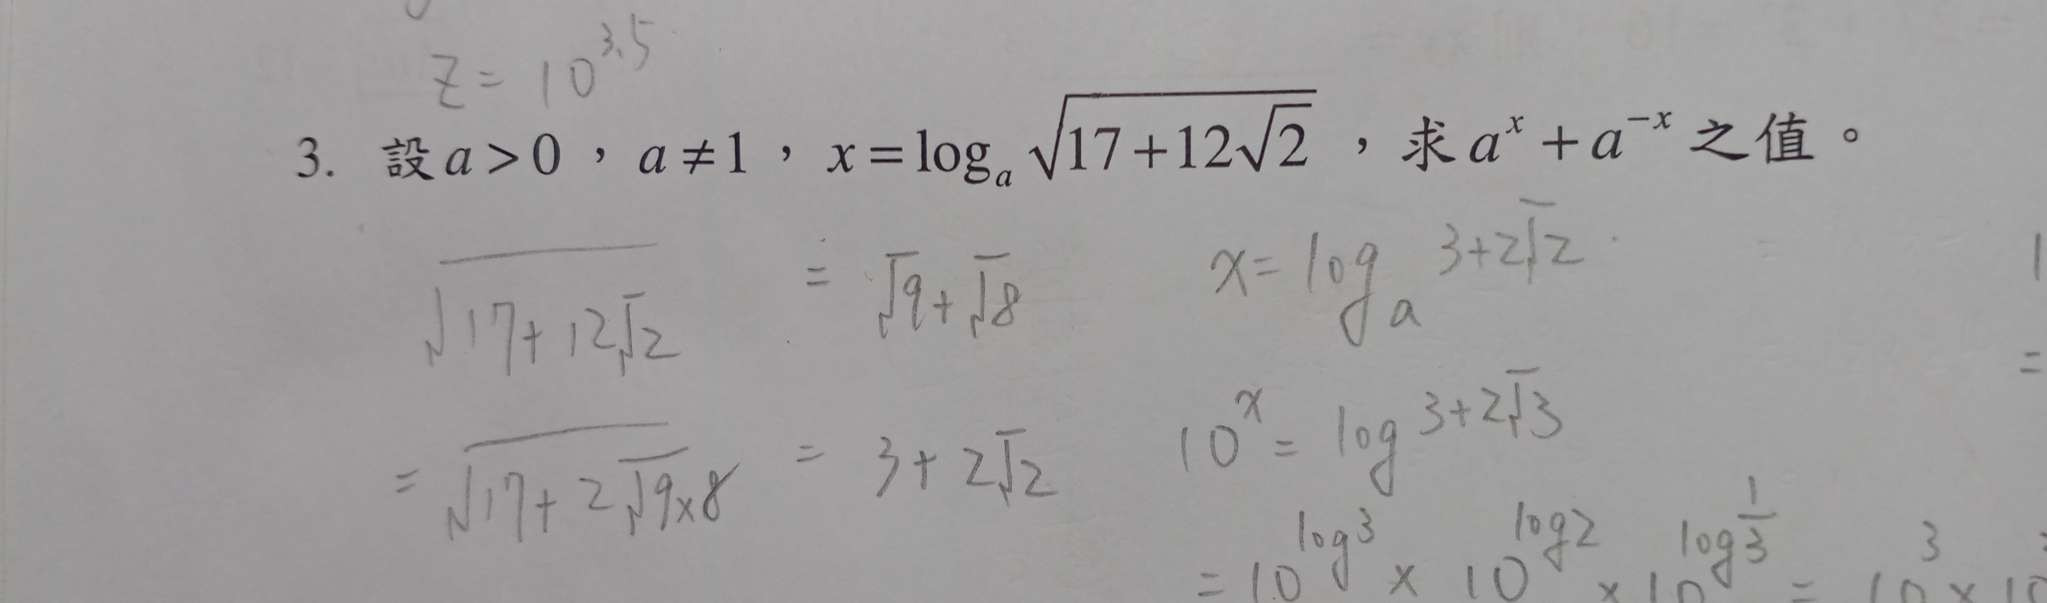 z = 10^{3.5}
3. 設 a > 0 ， a ≠ 1 ， x = log_a √(17+12√2) ，求 a^x + a^{-x} 之值。
√(17+12√2) = √9+√8 x = log_a 3+2√2
= √(17+2√(9×8)) = 3+2√2 10^x = log 3+2√3
= 10^{log3} × 10^{log2} × 10^{log 1/3} = 10^3 × 10